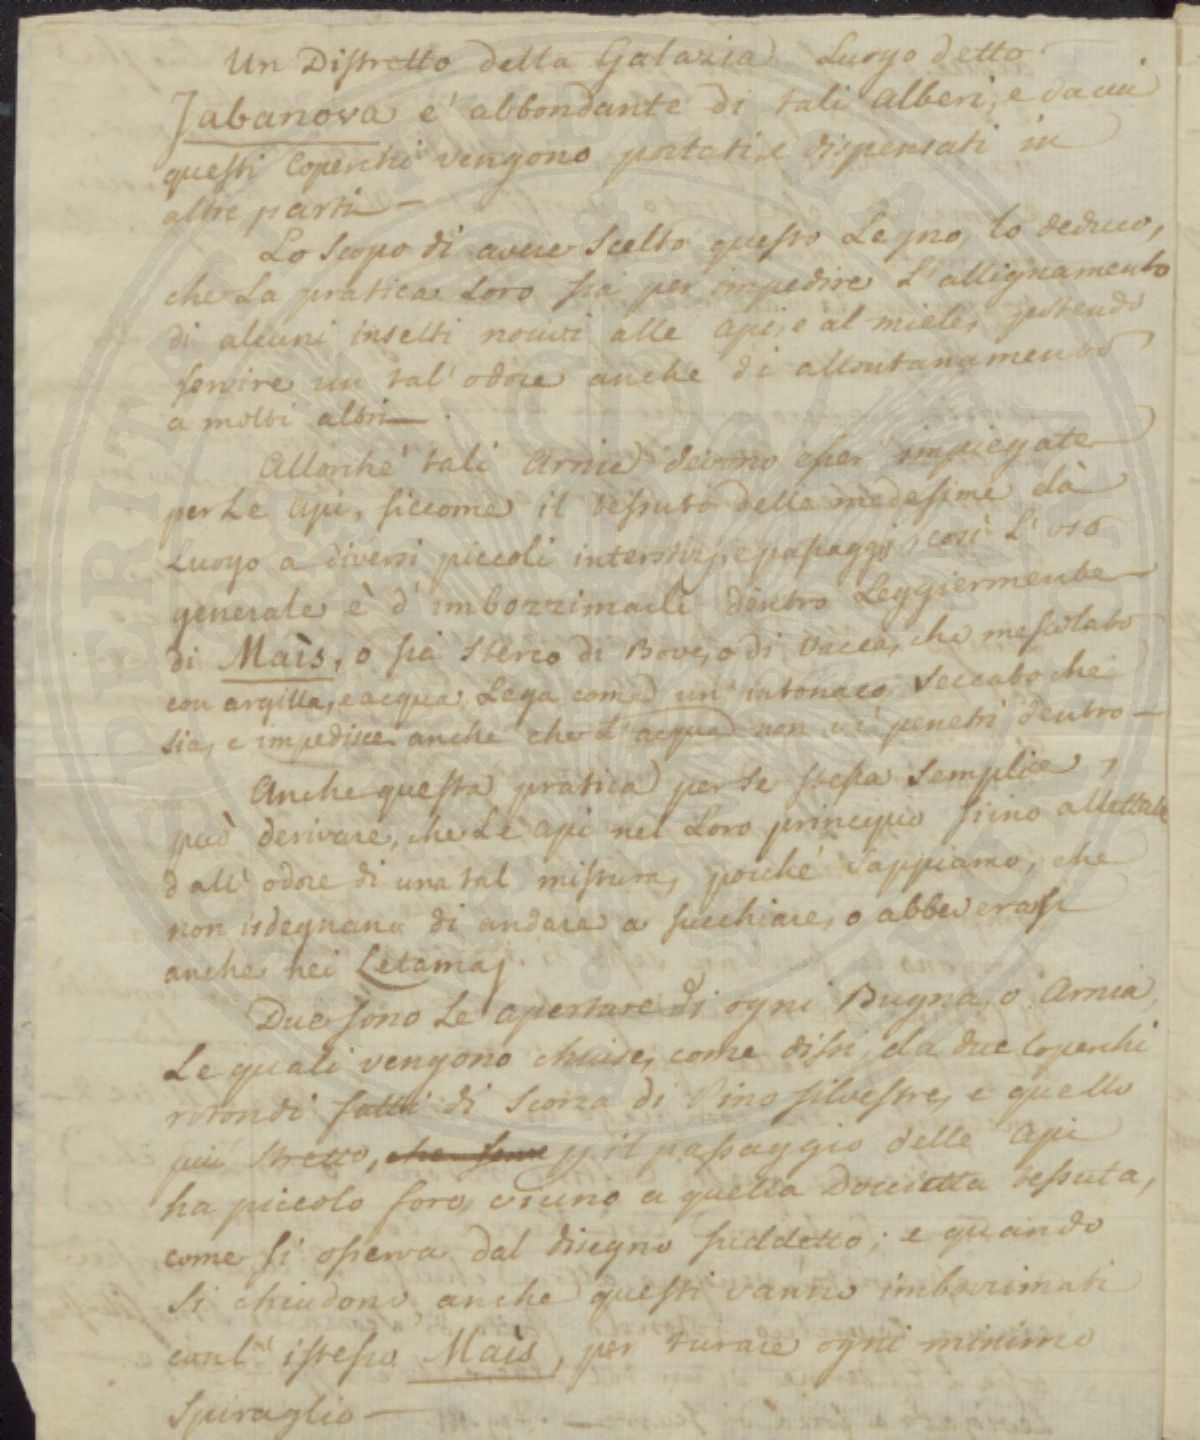 Un Distretto della Galazia Luogo detto
Jabanova e' abbondante di tali Alberi, e da cui
questi Coperchi vengono portati, e dispensati in
altre parti —
Lo Scopo di avere Scelto questo Legno, lo deduco,
che La pratica Loro sia per impedire L'allignamento
di alcuni insetti nocivi alle Api, e al miele, potendo
servire un tal' odore anche di allontanamento
a molti altri —.
Allorchè tali Arnie devono esser impiegate
per Le Api, siccome il tessuto delle medesime dà
Luogo a diversi piccoli interstizj, e passaggj, così L'uso
generale è d'imbozzimarle dentro Leggiermente
di Maìs, o sia Sterco di Bove, o di Vacca, che mescolato
con argilla, e acqua, Lega come un'intonaco, Seccato che
sia, e impedisce anche che L'acqua non vi penetri dentro —
Anche questa pratica per se stessa Semplice,
può derivare, che Le Api nel Loro principio siino allettate
dall'odore di una tal mistura, poichè Sappiamo, che
non isdegnano di andare a succhiare, o abbeverarsi
anche nei Letamaj.
Due sono Le aperture di ogni Bugna, o Arnia,
Le quali vengono chiuse, come dissi, da due Coperchi
rotondi fatti di Scorza di Pino silvestre, e quello
più stretto, che serve p il passaggio delle Api
ha piccolo foro, vicino a quella Doccietta tessuta,
come si osserva dal disegno suddetto; e quando
Si chiudono, anche questi vanno imbozzimati
coul istesso Maìs, per turare ogni minimo
Spiraglio —